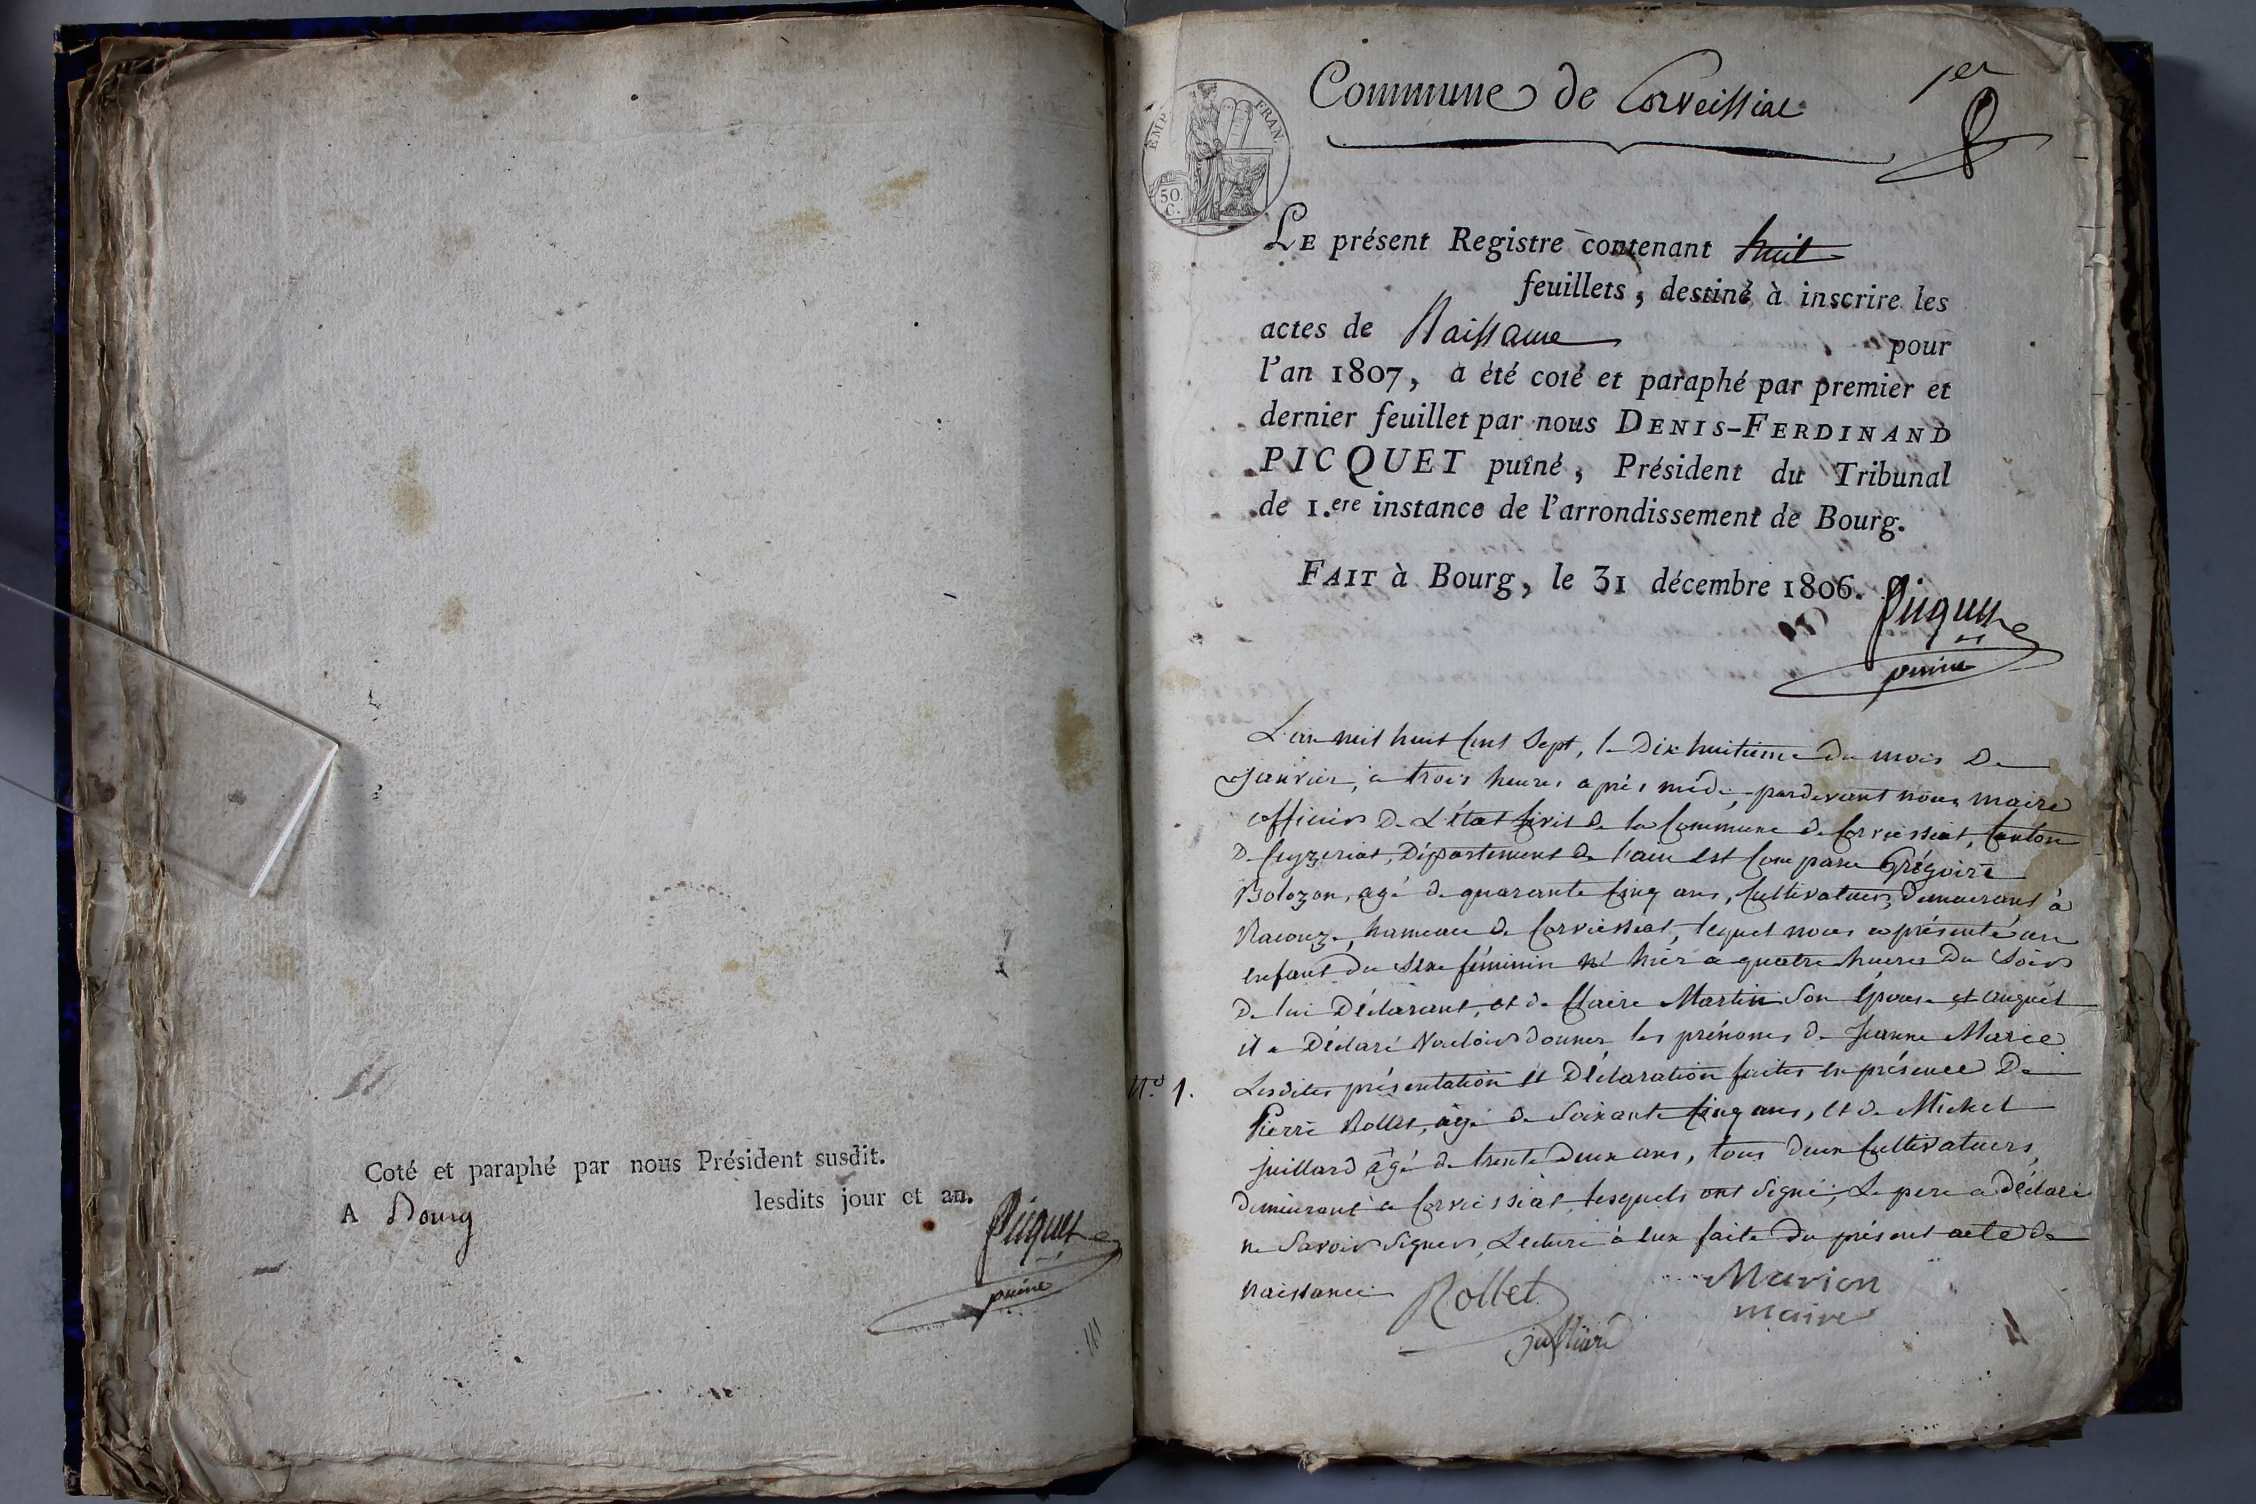 Coté et paraphé par nous Président susdit.
A Bourg lesdits jour et an.
Picquet
puiné
Commune de Corveissiat
1er
EMP. FRAN.
50 C.
LE présent Registre contenant huit
feuillets, destiné à inscrire les
actes de Naissance pour
l'an 1807, a été coté et paraphé par premier et
dernier feuillet par nous DENIS-FERDINAND
PICQUET puîné, Président du Tribunal
de 1.ere instance de l'arrondissement de Bourg.
FAIT à Bourg, le 31 décembre 1806.
Picquet
puiné
L'an mil huit cent sept, le dix huitieme du mois de
janvier, à trois heures après midi, pardevant nous maire
officier de L'état Civil de la Commune de Corveissiat, Canton
de Ceyzeriat, Département de l'ain est Comparu Grégoire
Bolozon, agé de quarante Cinq ans, Cultivateur, demeurant à
hameau de Corveissiat, lequel nous a présenté un
enfant du Sexe féminin né hier a quatre heures du Soir
de lui Déclarant, et de Claire Martin Son épouse, et auquel
il a Déclaré Vouloir donner les prénoms de Jeanne Marie
N.o 1. Lesdites présentation et Déclaration faites en présence De
Pierre Rollet, agé de Soixante Cinq ans, et de Michel
Juillard âgé de trente Deux ans, tous deux Cultivateurs,
Demeurant à Corveissiat, lesquels ont Signé; Le pere a Déclaré
ne Savoir Signer, Lecture à eux faite du présent acte de
naissance
Rollet
Marion
maire
juilliard